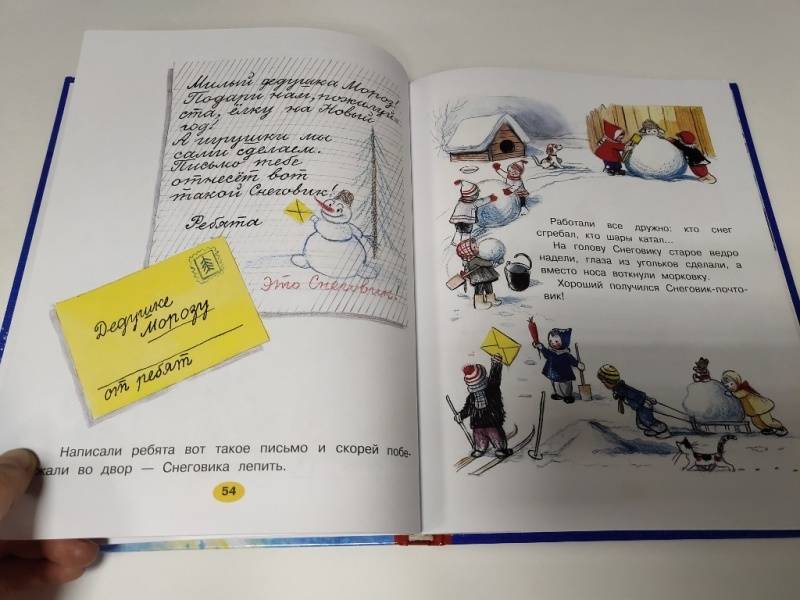 Милый дедушка Мороз!
Подари нам, пожалуй-
ста, ёлку на Новый
год!
А игрушки мы
сами сделаем.
Письмо тебе
отнесёт вот
такой Снеговик!
Ребята
Это Снеговик!
Дедушке
Морозу
от ребят
Написали ребята вот такое письмо и скорей побе-
жали во двор — Снеговика лепить.
54
Работали все дружно: кто снег
сгребал, кто шары катал...
На голову Снеговику старое ведро
надели, глаза из угольков сделали, а
вместо носа воткнули морковку.
Хороший получился Снеговик-почто-
вик!